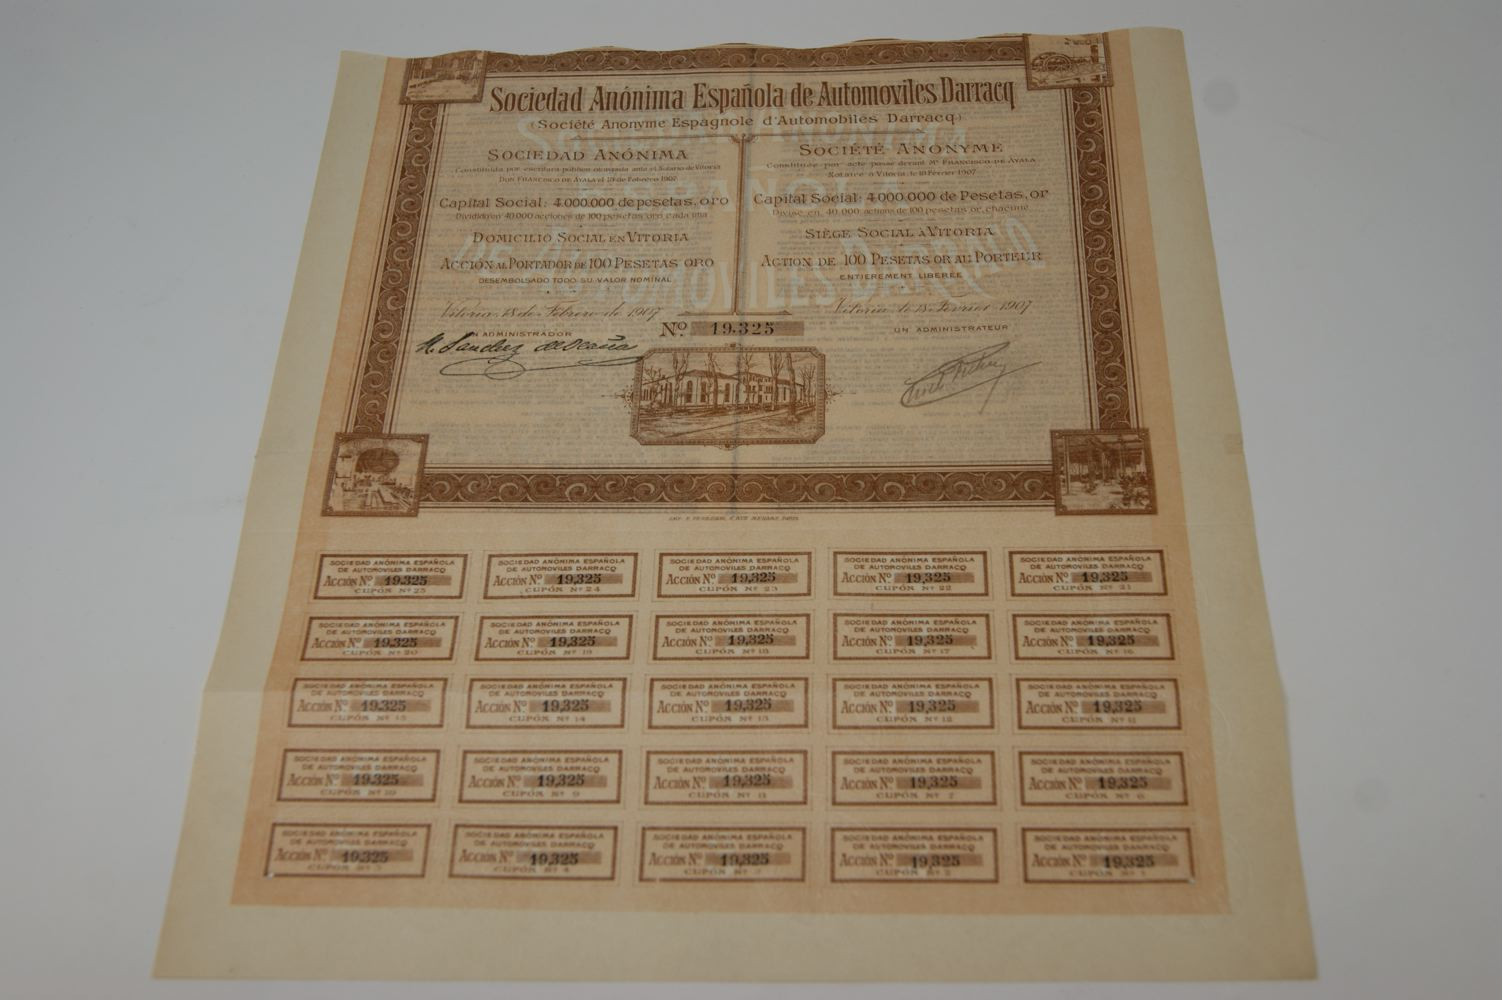 Sociedad Anónima Española de Automoviles Darracq
(Société Anonyme Espagnole d'Automobiles Darracq)
SOCIEDAD ANÓNIMA
Constituida por escritura pública otorgada ante el Notario de Vitoria
DON FRANCISCO DE AYALA el 18 de Febrero 1907
Capital Social: 4.000.000 de pesetas, oro
Dividido en 40.000 acciones de 100 pesetas oro cada una
DOMICILIO SOCIAL EN VITORIA
ACCIÓN AL PORTADOR DE 100 PESETAS ORO
DESEMBOLSADO TODO SU VALOR NOMINAL
Vitoria 18 de Febrero de 1907
UN ADMINISTRADOR
SOCIÉTÉ ANONYME
Constituée par acte passé devant Me FRANCISCO DE AYALA
Notaire à Vitoria, le 18 Février 1907
Capital Social: 4.000.000 de Pesetas, or
Divisé en 40.000 actions de 100 pesetas or, chacune
SIÈGE SOCIAL À VITORIA
ACTION DE 100 PESETAS OR AU PORTEUR
ENTIÈREMENT LIBÉRÉE
Vitoria le 18 Février 1907
UN ADMINISTRATEUR
No 19.325
SOCIEDAD ANÓNIMA ESPAÑOLA
DE AUTOMOVILES DARRACQ
ACCIÓN No 19,325
CUPÓN No 25
SOCIEDAD ANÓNIMA ESPAÑOLA
DE AUTOMOVILES DARRACQ
ACCIÓN No 19,325
CUPÓN No 24
SOCIEDAD ANÓNIMA ESPAÑOLA
DE AUTOMOVILES DARRACQ
ACCIÓN No 19,325
CUPÓN No 23
SOCIEDAD ANÓNIMA ESPAÑOLA
DE AUTOMOVILES DARRACQ
ACCIÓN No 19,325
CUPÓN No 22
SOCIEDAD ANÓNIMA ESPAÑOLA
DE AUTOMOVILES DARRACQ
ACCIÓN No 19,325
CUPÓN No 21
SOCIEDAD ANÓNIMA ESPAÑOLA
DE AUTOMOVILES DARRACQ
ACCIÓN No 19,325
CUPÓN No 20
SOCIEDAD ANÓNIMA ESPAÑOLA
DE AUTOMOVILES DARRACQ
ACCIÓN No 19,325
CUPÓN No 19
SOCIEDAD ANÓNIMA ESPAÑOLA
DE AUTOMOVILES DARRACQ
ACCIÓN No 19,325
CUPÓN No 18
SOCIEDAD ANÓNIMA ESPAÑOLA
DE AUTOMOVILES DARRACQ
ACCIÓN No 19,325
CUPÓN No 17
SOCIEDAD ANÓNIMA ESPAÑOLA
DE AUTOMOVILES DARRACQ
ACCIÓN No 19,325
CUPÓN No 16
SOCIEDAD ANÓNIMA ESPAÑOLA
DE AUTOMOVILES DARRACQ
ACCIÓN No 19.325
CUPÓN No 15
SOCIEDAD ANÓNIMA ESPAÑOLA
DE AUTOMOVILES DARRACQ
ACCIÓN No 19,325
CUPÓN No 14
SOCIEDAD ANÓNIMA ESPAÑOLA
DE AUTOMOVILES DARRACQ
ACCIÓN No 19,325
CUPÓN No 13
SOCIEDAD ANÓNIMA ESPAÑOLA
DE AUTOMOVILES DARRACQ
ACCIÓN No 19,325
CUPÓN No 12
SOCIEDAD ANÓNIMA ESPAÑOLA
DE AUTOMOVILES DARRACQ
ACCIÓN No 19,325
CUPÓN No 11
SOCIEDAD ANÓNIMA ESPAÑOLA
DE AUTOMOVILES DARRACQ
ACCIÓN No 19.325
CUPÓN No 10
SOCIEDAD ANÓNIMA ESPAÑOLA
DE AUTOMOVILES DARRACQ
ACCIÓN No 19,325
CUPÓN No 9
SOCIEDAD ANÓNIMA ESPAÑOLA
DE AUTOMOVILES DARRACQ
ACCIÓN No 19,325
CUPÓN No
SOCIEDAD ANÓNIMA ESPAÑOLA
DE AUTOMOVILES DARRACQ
ACCIÓN No 19,325
CUPÓN No 7
SOCIEDAD ANÓNIMA ESPAÑOLA
DE AUTOMOVILES DARRACQ
ACCIÓN No 19,325
CUPÓN No 6
SOCIEDAD ANÓNIMA ESPAÑOLA
DE AUTOMOVILES DARRACQ
ACCIÓN No 19.325
CUPÓN No
SOCIEDAD ANÓNIMA ESPAÑOLA
DE AUTOMOVILES DARRACQ
ACCIÓN No 19,325
CUPÓN No 4
SOCIEDAD ANÓNIMA ESPAÑOLA
DE AUTOMOVILES DARRACQ
ACCIÓN No 19,325
CUPÓN No
SOCIEDAD ANÓNIMA ESPAÑOLA
DE AUTOMOVILES DARRACQ
ACCIÓN No 19,325
CUPÓN No 2
SOCIEDAD ANÓNIMA ESPAÑOLA
DE AUTOMOVILES DARRACQ
ACCIÓN No 19,325
CUPÓN No 1